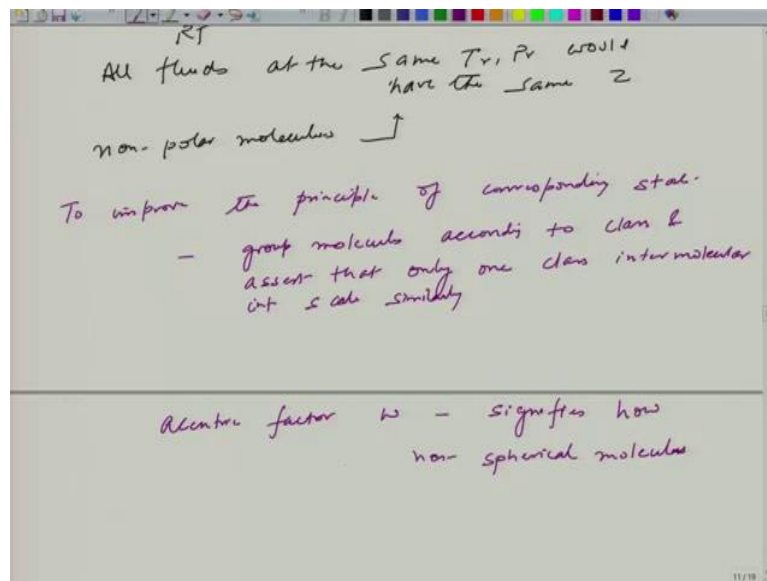 RT
All fluids at the same Tr, Pr would
have the same Z
non-polar molecules
To improve the principle of corresponding stat.
- group molecules accordig to class &
assert that only one class intermolecular
int scale similarly
acentric factor w - signifies how
non-spherical molecules
11/19